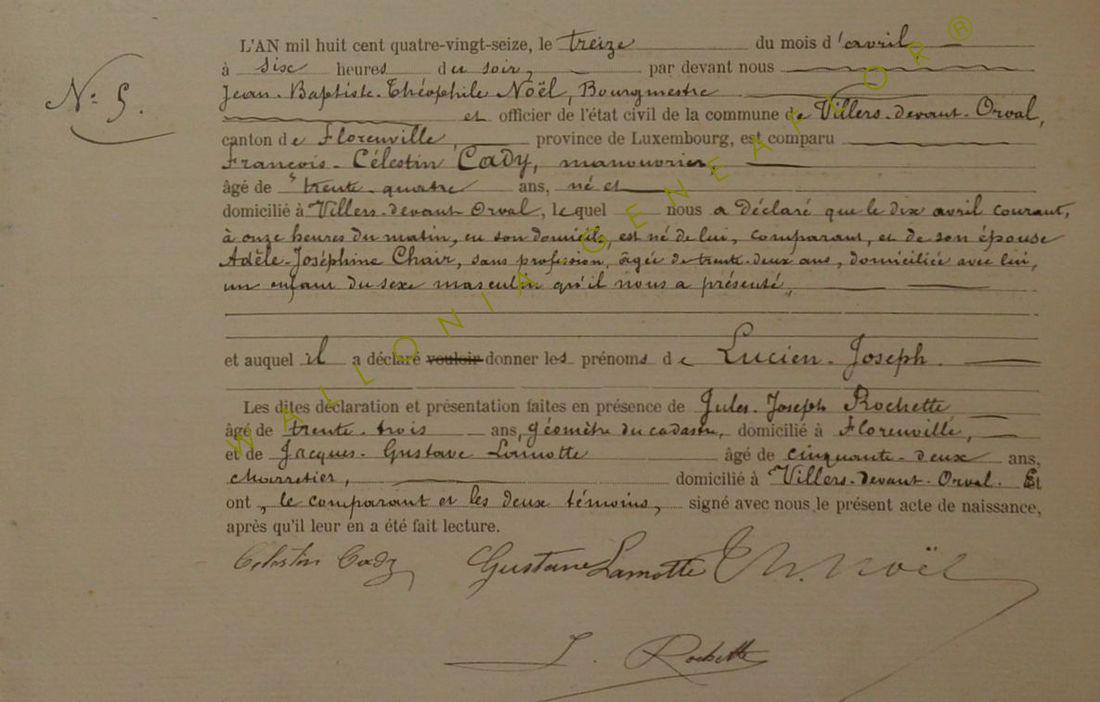 L'AN mil huit cent quatre-vingt-seize, le treize du mois d'avril
N° 5.
à six heures du soir, par devant nous
Jean-Baptiste-Théophile Noël, Bourgmestre
et officier de l'état civil de la commune de Villers-devant-Orval,
canton de Florenville, province de Luxembourg, est comparu
François-Célestin Cady, manouvrier,
âgé de trente-quatre ans, né et
domicilié à Villers-devant-Orval, lequel nous a déclaré que le dix avril courant,
à onze heures du matin, en son domicile, est né de lui, comparant, et de son épouse
Adèle-Joséphine Chair, sans profession, âgée de trente-deux ans, domiciliée avec lui,
un enfant du sexe masculin qu'il nous a présenté,
et auquel il a déclaré vouloir donner les prénoms de Lucien-Joseph
Les dites déclaration et présentation faites en présence de Jules-Joseph Rochette
âgé de trente-trois ans, géomètre du cadastre, domicilié à Florenville,
et de Jacques-Gustave Lamotte âgé de cinquante-deux ans,
charretier, domicilié à Villers-devant-Orval. Et
ont, le comparant et les deux témoins, signé avec nous le présent acte de naissance,
après qu'il leur en a été fait lecture.
Célestin Cady Gustave Lamotte Th. Noël
J. Rochette
WALLONIA GENEALOR®